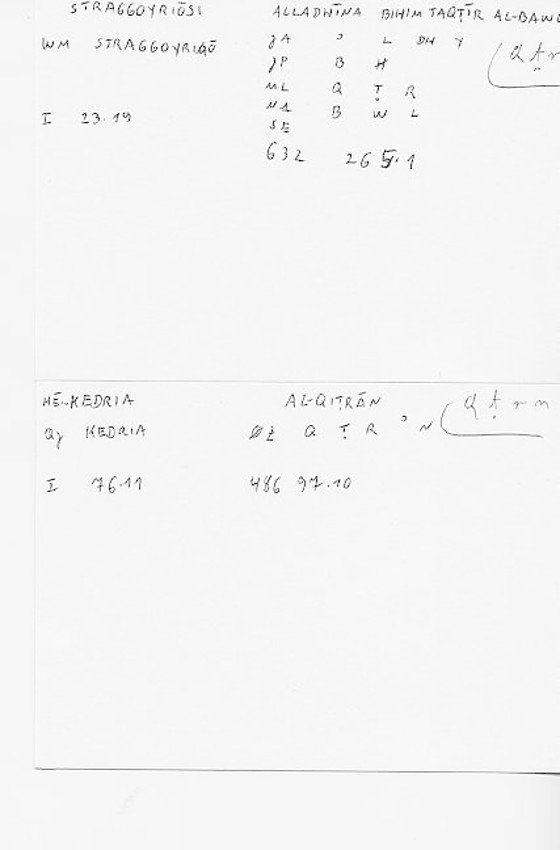 STRAGGOYRIŌSI ALLADHĪNA BIHIM TAQṬĪR AL-BAWL
WM STRAGGOYRIAŌ JA ʾ L DH Y Q Ṭ r
JP B H
ML Q Ṭ R
NA B W L
I 23.19 SE
632 265.1
HĒ-KEDRIA AL-QIṬRĀN Q Ṭ r n
QJ KEDRIA ØŁ Q Ṭ R ʾ N
I 76.11 486 97.10